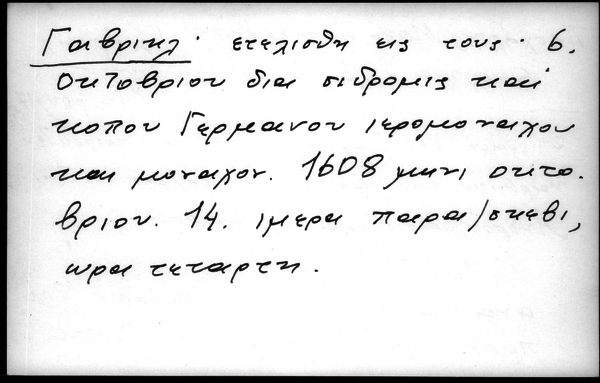 Γαβριηλ· ετελισθη εις τους· 6.
οκτοβριου δια σιδρομις και
κοπου Γερμανου ιερομοναχου
και μοναχον. 1608 μηνι οκτο.
βριου. 14. ιμερα παρα/σκεβι,
ωρα τεταρτη.